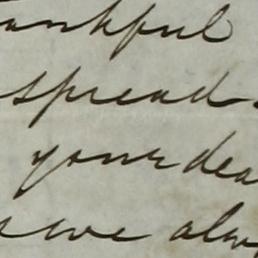 ankful
spread
your dea
we alw